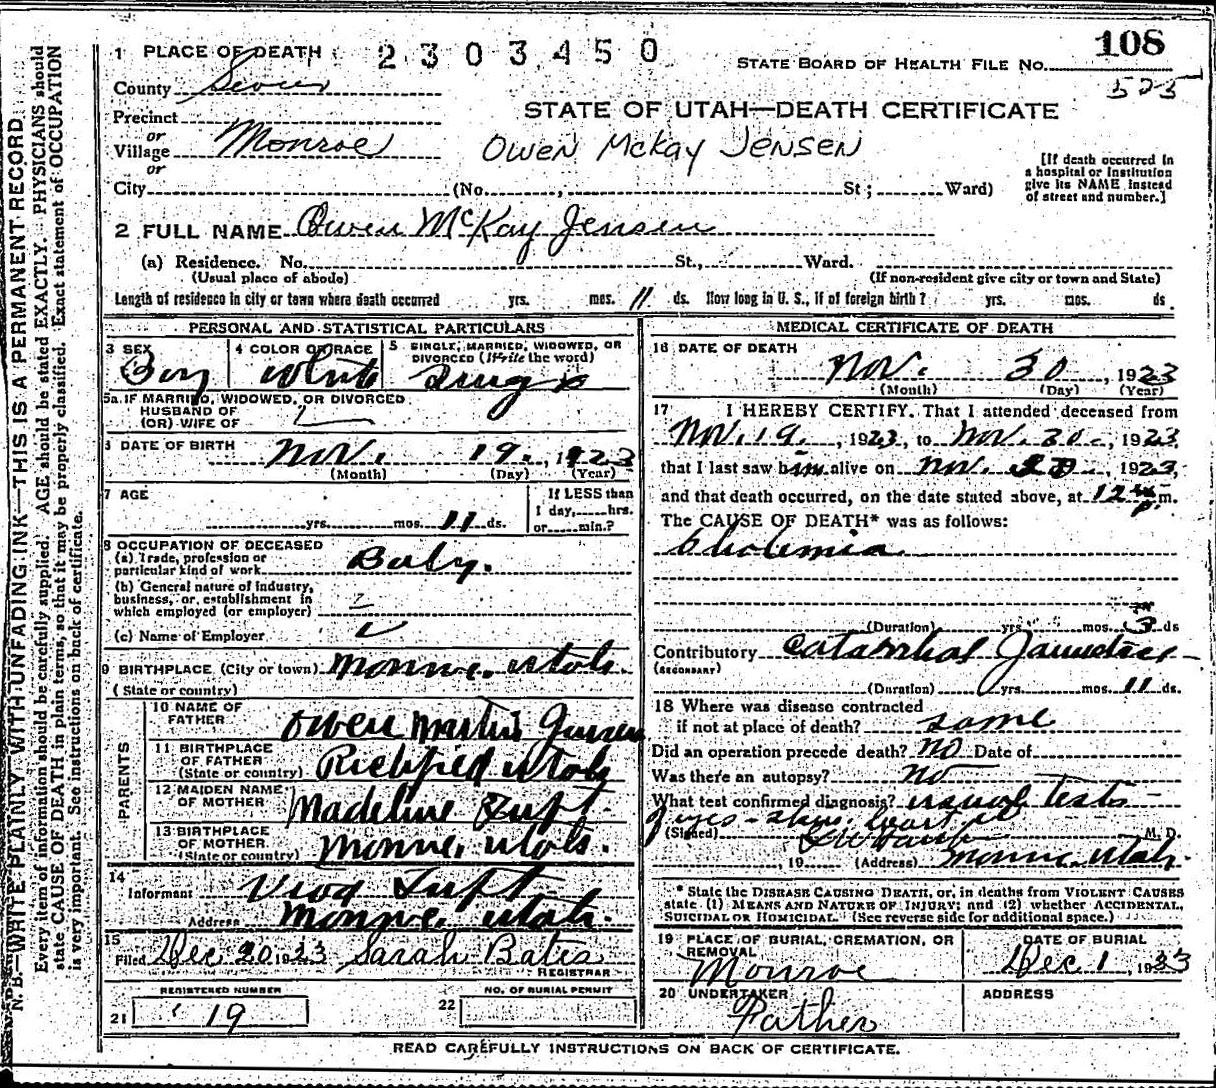 108
1 PLACE OF DEATH 2303450 STATE BOARD OF HEALTH FILE No.
County Sevier 525
STATE OF UTAH—DEATH CERTIFICATE
Precinct
or
Village Monroe Owen McKay Jensen
or
City (No. , St; Ward)
[If death occurred in
a hospital or institution
give its NAME instead
of street and number.]
2 FULL NAME Owen McKay Jensen
(a) Residence. No. St., Ward.
(Usual place of abode) (If non-resident give city or town and State)
Length of residence in city or town where death occurred yrs. mos. 11 ds. How long in U. S., if of foreign birth? yrs. mos. ds
PERSONAL AND STATISTICAL PARTICULARS
3 SEX 4 COLOR OR RACE 5 SINGLE, MARRIED, WIDOWED, OR
DIVORCED (Write the word)
Boy White Single
5a IF MARRIED, WIDOWED, OR DIVORCED
HUSBAND OF
(OR) WIFE OF
6 DATE OF BIRTH Nov. 19. , 1923
(Month) (Day) (Year)
7 AGE If LESS than
1 day, hrs.
yrs. mos. 11 ds. or min.?
8 OCCUPATION OF DECEASED
(a) Trade, profession or
particular kind of work Baby.
(b) General nature of industry,
business, or establishment in
which employed (or employer)
(c) Name of Employer
9 BIRTHPLACE (City or town) Monroe. Utah.
(State or country)
PARENTS
10 NAME OF
FATHER Owen Martin Jensen
11 BIRTHPLACE
OF FATHER
(State or country) Richfield Utah
12 MAIDEN NAME
OF MOTHER Madeline Tuft.
13 BIRTHPLACE
OF MOTHER
(State or country) Monroe. Utah.
14
Informant Tuft
Address Monroe. Utah.
15
Filed Dec 20 1923 Sarah Bates
REGISTRAR
REGISTERED NUMBER NO. OF BURIAL PERMIT
21 19 22
MEDICAL CERTIFICATE OF DEATH
16 DATE OF DEATH
Nov. 30 , 1923
(Month) (Day) (Year)
17 I HEREBY CERTIFY, That I attended deceased from
Nov. 19. , 1923, to Nov. 30 , 1923,
that I last saw him alive on Nov. 30 , 1923,
and that death occurred, on the date stated above, at 12 p. m.
The CAUSE OF DEATH* was as follows:
Cholemia
(Duration) yrs mos. 3 ds
Contributory Catarrhal Jaundice
(SECONDARY)
(Duration) yrs. mos. 11 ds.
18 Where was disease contracted
if not at place of death? same
Did an operation precede death? no Date of
Was there an autopsy? no
What test confirmed diagnosis? usual tests
eyes - skin. heart
(Signed) M. D.
, 19 (Address) Monroe Utah.
* State the DISEASE CAUSING DEATH, or, in deaths from VIOLENT CAUSES
state (1) MEANS AND NATURE OF INJURY; and (2) whether ACCIDENTAL,
SUICIDAL OR HOMICIDAL. (See reverse side for additional space.)
19 PLACE OF BURIAL, CREMATION, OR
REMOVAL DATE OF BURIAL
Monroe Dec 1 , 1923
20 UNDERTAKER ADDRESS
Father
READ CAREFULLY INSTRUCTIONS ON BACK OF CERTIFICATE.
N. B.—WRITE PLAINLY, WITH UNFADING INK—THIS IS A PERMANENT RECORD
Every item of information should be carefully supplied. AGE should be stated EXACTLY. PHYSICIANS should
state CAUSE OF DEATH in plain terms, so that it may be properly classified. Exact statement of OCCUPATION
is very important. See instructions on back of certificate.